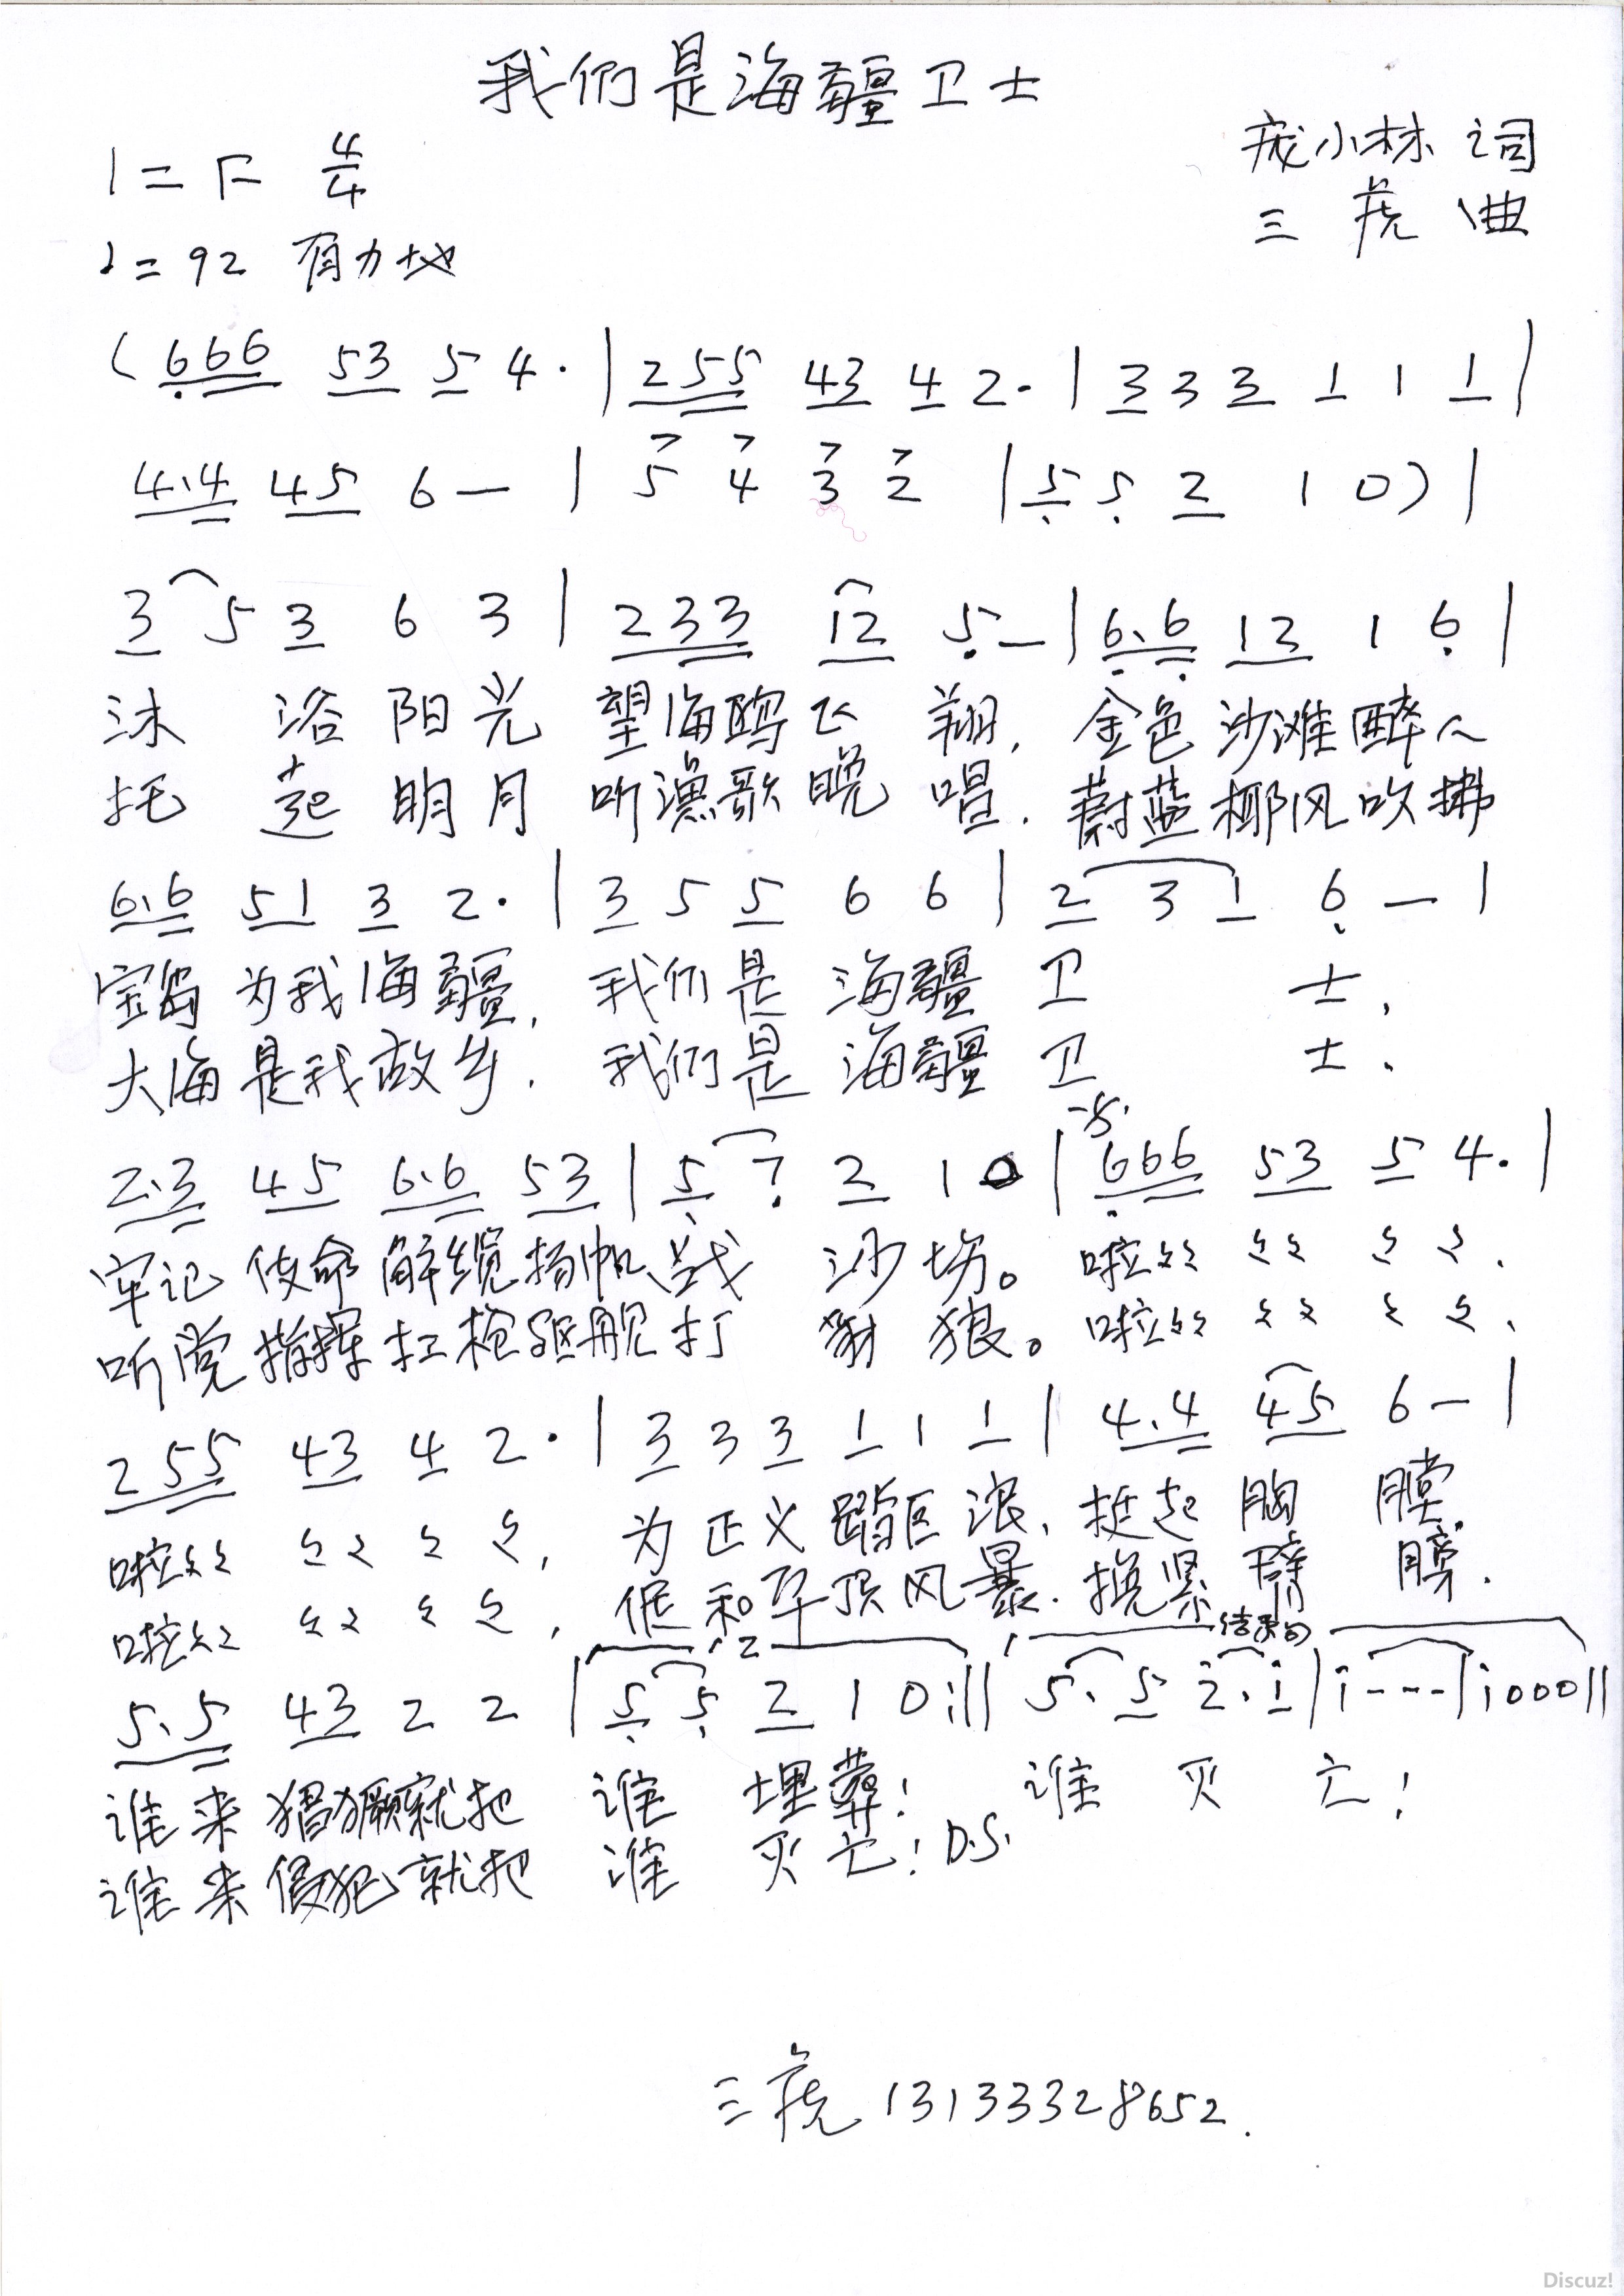 我们是海疆卫士
1=F 4/4
庞小林 词
三虎 曲
♩=92 有力地
( 666 53 5 4· | 255 43 4 2· | 3 3 3 1 1 1 |
4·4 45 6 — | 5 4 3 2 | 5 5 2 1 0 ) |
3 5 3 6 3 | 233 12 5 — | 6·6 12 1 6 |
沐浴阳光 望海鸥飞翔,金色沙滩醉人
托起明月 听渔歌晚唱.蔚蓝椰风吹拂
6·6 51 3 2· | 3 5 5 6 6 | 2 3 1 6 — |
宝岛为我海疆,我们是海疆卫士,
大海是我故乡.我们是海疆卫士、
2·3 45 6·6 53 | 5 7 2 1 0 | 666 53 5 4· |
牢记使命解缆扬帆战沙场。啦〻〻 〻〻 〻 〻.
听党指挥扛枪驱舰打豺狼。啦〻〻 〻〻 〻 〻、
255 43 4 2· | 3 3 3 1 1 1 | 4·4 45 6 — |
啦〻〻 〻〻 〻 〻,为正义蹈巨浪、挺起胸膛.
啦〻〻 〻〻 〻 〻,保和平顶风暴.挽紧臂膀.
1 2 结束句
5·5 43 2 2 | 5 5 2 1 0 :|| 5· 5 2· 1 | 1 - - - | 1 0 0 0 ||
谁来猖獗就把谁埋葬! 谁灭亡!
谁来侵犯就把谁灭亡! D.S.
三虎 13133328652.
Discuz!